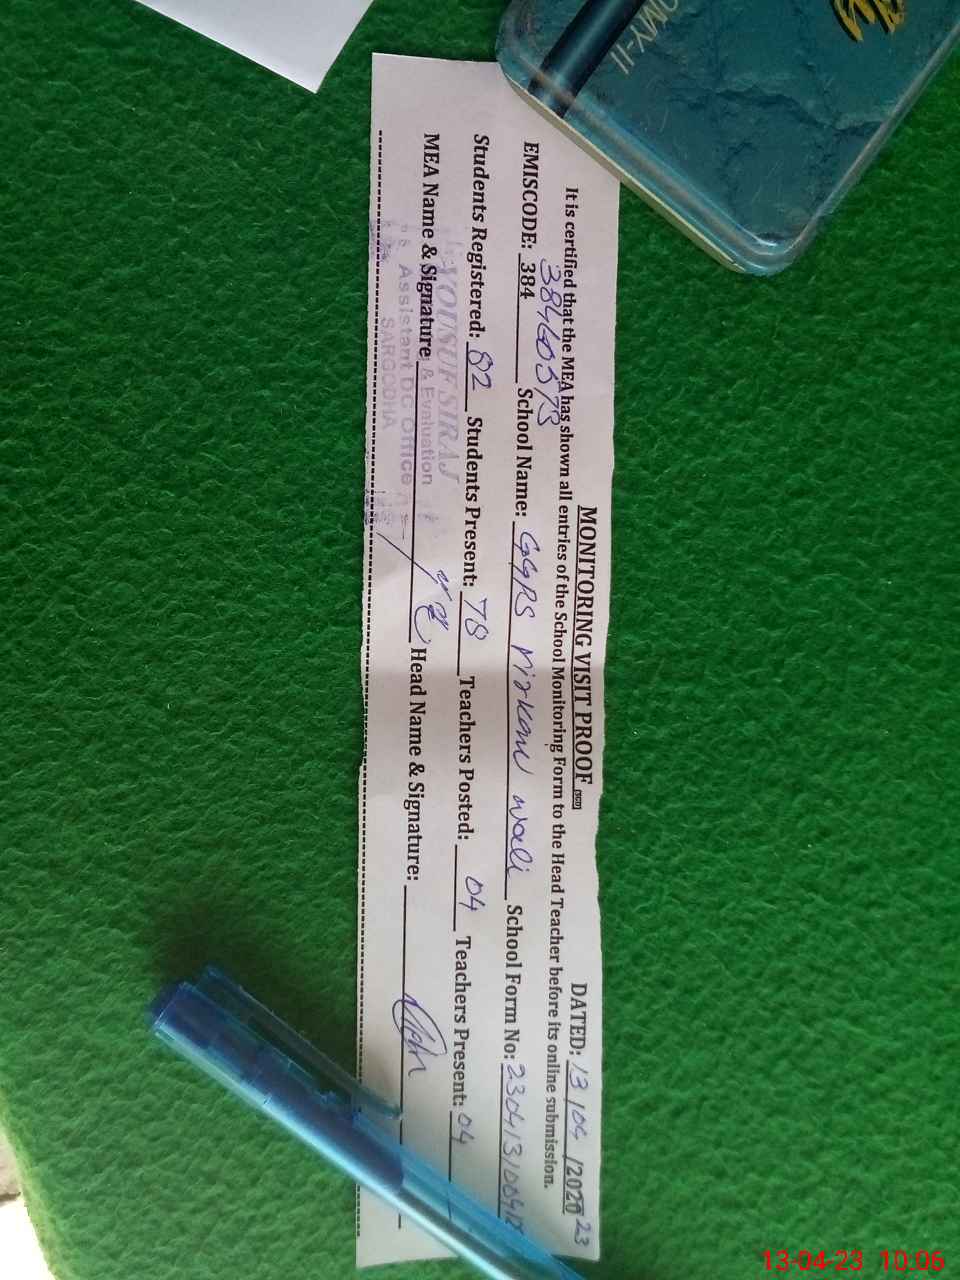 MONITORING VISIT PROOF
DATED: 13/04/2020 23
It is certified that the MEA has shown all entries of the School Monitoring Form to the Head Teacher before its online submission.
EMISCODE: 384 School Name: GGPS wali School Form No:
Students Registered: 82 Students Present: 78 Teachers Posted: 04 Teachers Present: 04
MEA Name & Signature Head Name & Signature:
YOUSUF SIRAJ
& Evaluation
Assistant DC Office
SARGODHA
OMY-11
13-04-23 10:06